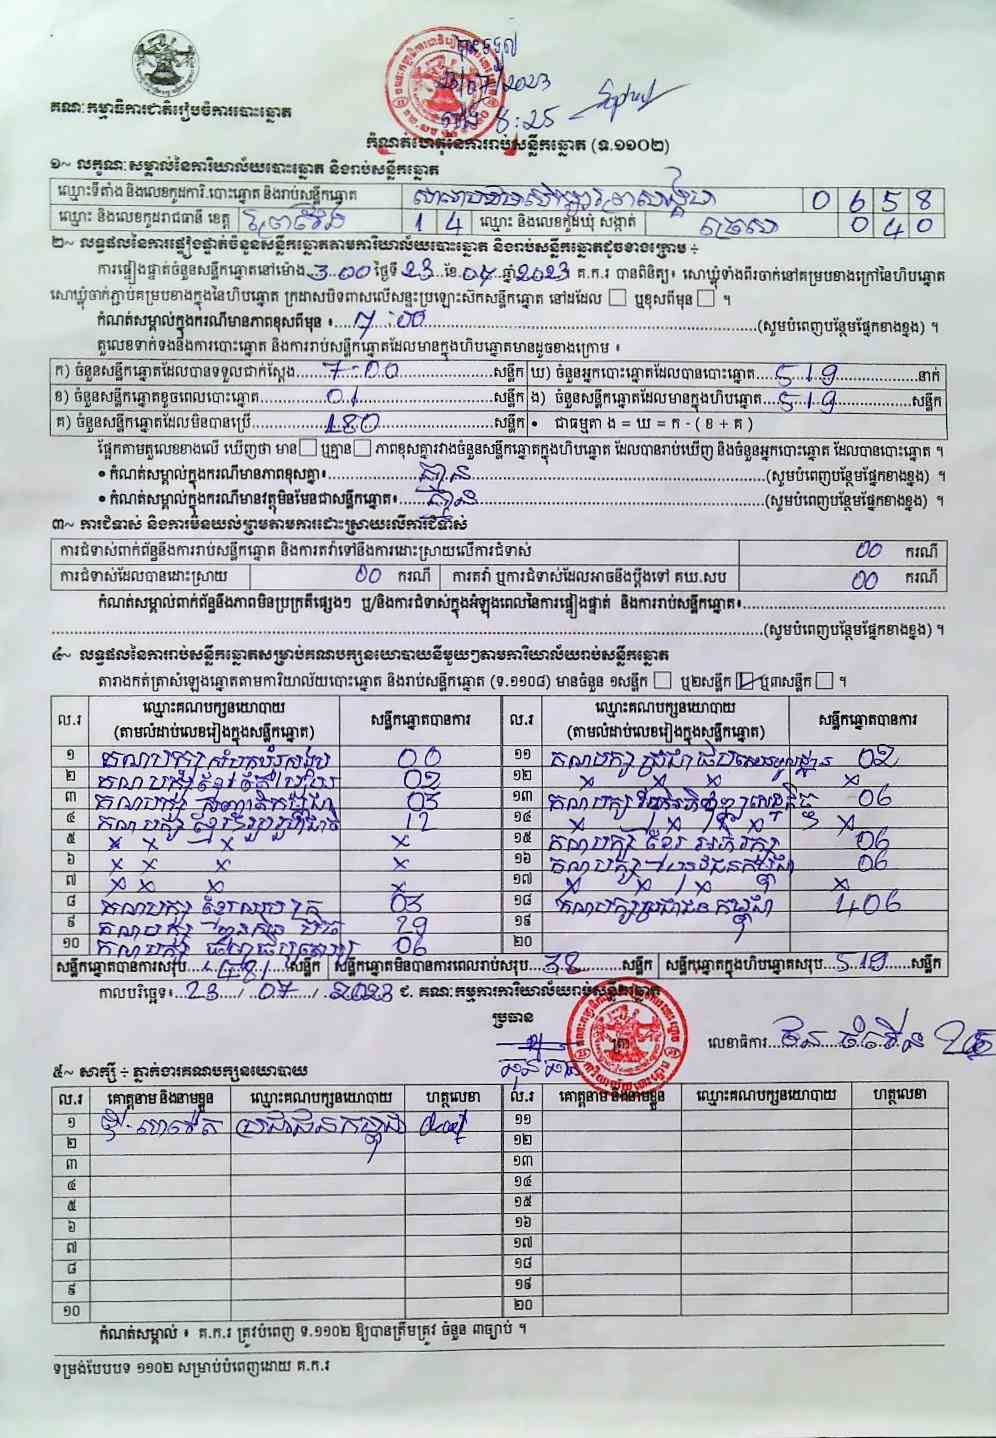 បានទទួល
23/07/2023
ម៉ោង 8:25
គណៈកម្មាធិការជាតិរៀបចំការបោះឆ្នោត
កំណត់ហេតុនៃការរាប់សន្លឹកឆ្នោត (ទ.១១០២)
១~ លក្ខណៈសម្គាល់នៃការិយាល័យបោះឆ្នោត និងរាប់សន្លឹកឆ្នោត
ឈ្មោះទីតាំង និងលេខកូដការិ.បោះឆ្នោត និងរាប់សន្លឹកឆ្នោត 0 6 5 8
ឈ្មោះ និងលេខកូដរាជធានី ខេត្ត ព្រៃវែង 1 4 ឈ្មោះ និងលេខកូដឃុំ សង្កាត់ 0 4 0
២~ លទ្ធផលនៃការផ្ទៀងផ្ទាត់ចំនួនសន្លឹកឆ្នោតតាមការិយាល័យបោះឆ្នោត និងរាប់សន្លឹកឆ្នោតដូចខាងក្រោម ÷
ការផ្ទៀងផ្ទាត់ចំនួនសន្លឹកឆ្នោតនៅម៉ោង 3.00 ថ្ងៃទី 23 ខែ 07 ឆ្នាំ 2023 គ.ក.រ បានពិនិត្យ៖ សោឃ្លុំទាំងពីរចាក់នៅគម្របខាងក្រៅនៃហិបឆ្នោត
សោឃ្លុំចាក់ភ្ជាប់គម្របខាងក្នុងនៃហិបឆ្នោត ក្រដាសបិទពាសលើសន្ទះប្រឡោះស៊កសន្លឹកឆ្នោត នៅដដែល ☐ ឬខុសពីមុន ☐ ។
កំណត់សម្គាល់ក្នុងករណីមានភាពខុសពីមុន ៖ 7:00 (សូមបំពេញបន្ថែមផ្នែកខាងខ្នង) ។
តួលេខទាក់ទងនឹងការបោះឆ្នោត និងការរាប់សន្លឹកឆ្នោតដែលមានក្នុងហិបឆ្នោតមានដូចខាងក្រោម ៖
ក) ចំនួនសន្លឹកឆ្នោតដែលបានទទួលជាក់ស្តែង 700 សន្លឹក ឃ) ចំនួនអ្នកបោះឆ្នោតដែលបានបោះឆ្នោត 519 នាក់
ខ) ចំនួនសន្លឹកឆ្នោតខូចពេលបោះឆ្នោត 01 សន្លឹក ង) ចំនួនសន្លឹកឆ្នោតដែលមានក្នុងហិបឆ្នោត 519 សន្លឹក
គ) ចំនួនសន្លឹកឆ្នោតដែលមិនបានប្រើ 180 សន្លឹក • ជាធម្មតា ង = ឃ = ក - ( ខ + គ )
ផ្អែកតាមតួលេខខាងលើ ឃើញថា មាន ☐ ឬគ្មាន ☐ ភាពខុសគ្នារវាងចំនួនសន្លឹកឆ្នោតក្នុងហិបឆ្នោត ដែលបានរាប់ឃើញ និងចំនួនអ្នកបោះឆ្នោត ដែលបានបោះឆ្នោត ។
• កំណត់សម្គាល់ក្នុងករណីមានភាពខុសគ្នា៖ គ្មាន (សូមបំពេញបន្ថែមផ្នែកខាងខ្នង) ។
• កំណត់សម្គាល់ក្នុងករណីមានវត្ថុមិនមែនជាសន្លឹកឆ្នោត៖ គ្មាន (សូមបំពេញបន្ថែមផ្នែកខាងខ្នង) ។
៣~ ការជំទាស់ និងការមិនយល់ព្រមតាមការដោះស្រាយលើការជំទាស់
ការជំទាស់ពាក់ព័ន្ធនឹងការរាប់សន្លឹកឆ្នោត និងការតវ៉ាទៅនឹងការដោះស្រាយលើការជំទាស់ 00 ករណី
ការជំទាស់ដែលបានដោះស្រាយ 00 ករណី ការតវ៉ា ឬការជំទាស់ដែលអាចនឹងប្តឹងទៅ គឃ.សប 00 ករណី
កំណត់សម្គាល់ពាក់ព័ន្ធនឹងភាពមិនប្រក្រតីផ្សេងៗ ឬ/និងការជំទាស់ក្នុងអំឡុងពេលនៃការផ្ទៀងផ្ទាត់ និងការរាប់សន្លឹកឆ្នោត៖
(សូមបំពេញបន្ថែមផ្នែកខាងខ្នង) ។
៤~ លទ្ធផលនៃការរាប់សន្លឹកឆ្នោតសម្រាប់គណបក្សនយោបាយនីមួយៗតាមការិយាល័យរាប់សន្លឹកឆ្នោត
តារាងកត់ត្រាសំឡេងឆ្នោតតាមការិយាល័យបោះឆ្នោត និងរាប់សន្លឹកឆ្នោត (ទ.១១០៨) មានចំនួន ១សន្លឹក ☐ ឬ២សន្លឹក ☑ ឬ៣សន្លឹក ☐ ។
ល.រ ឈ្មោះគណបក្សនយោបាយ (តាមលំដាប់លេខរៀងក្នុងសន្លឹកឆ្នោត) សន្លឹកឆ្នោតបានការ ល.រ ឈ្មោះគណបក្សនយោបាយ (តាមលំដាប់លេខរៀងក្នុងសន្លឹកឆ្នោត) សន្លឹកឆ្នោតបានការ
១ គណបក្ស 00 ១១ គណបក្ស 02
២ គណបក្ស 02 ១២ x x x
៣ គណបក្ស 03 ១៣ គណបក្ស 06
៤ គណបក្ស 12 ១៤ x x x x
៥ x x x x ១៥ គណបក្ស ខ្មែរ 06
៦ x x x x ១៦ គណបក្ស 06
៧ x x x x ១៧ x x x x
៨ គណបក្ស ខ្មែរ 03 ១៨ គណបក្សប្រជាជនកម្ពុជា 406
៩ គណបក្ស 29 ១៩
១០ គណបក្ស 06 ២០
សន្លឹកឆ្នោតបានការសរុប សន្លឹក សន្លឹកឆ្នោតមិនបានការពេលរាប់សរុប 38 សន្លឹក សន្លឹកឆ្នោតក្នុងហិបឆ្នោតសរុប 519 សន្លឹក
កាលបរិច្ឆេទ៖ 23 / 07 / 2023 ជ. គណៈកម្មការការិយាល័យរាប់សន្លឹកឆ្នោត
ប្រធាន
លេខាធិការ
៥~ សាក្សី ÷ ភ្នាក់ងារគណបក្សនយោបាយ
ល.រ គោត្តនាម និងនាមខ្លួន ឈ្មោះគណបក្សនយោបាយ ហត្ថលេខា ល.រ គោត្តនាម និងនាមខ្លួន ឈ្មោះគណបក្សនយោបាយ ហត្ថលេខា
១ ប្រជាជនកម្ពុជា ១១
២ ១២
៣ ១៣
៤ ១៤
៥ ១៥
៦ ១៦
៧ ១៧
៨ ១៨
៩ ១៩
១០ ២០
កំណត់សម្គាល់ ៖ គ.ក.រ ត្រូវបំពេញ ទ.១១០២ ឱ្យបានត្រឹមត្រូវ ចំនួន ៣ច្បាប់ ។
ទម្រង់បែបបទ ១១០២ សម្រាប់បំពេញដោយ គ.ក.រ